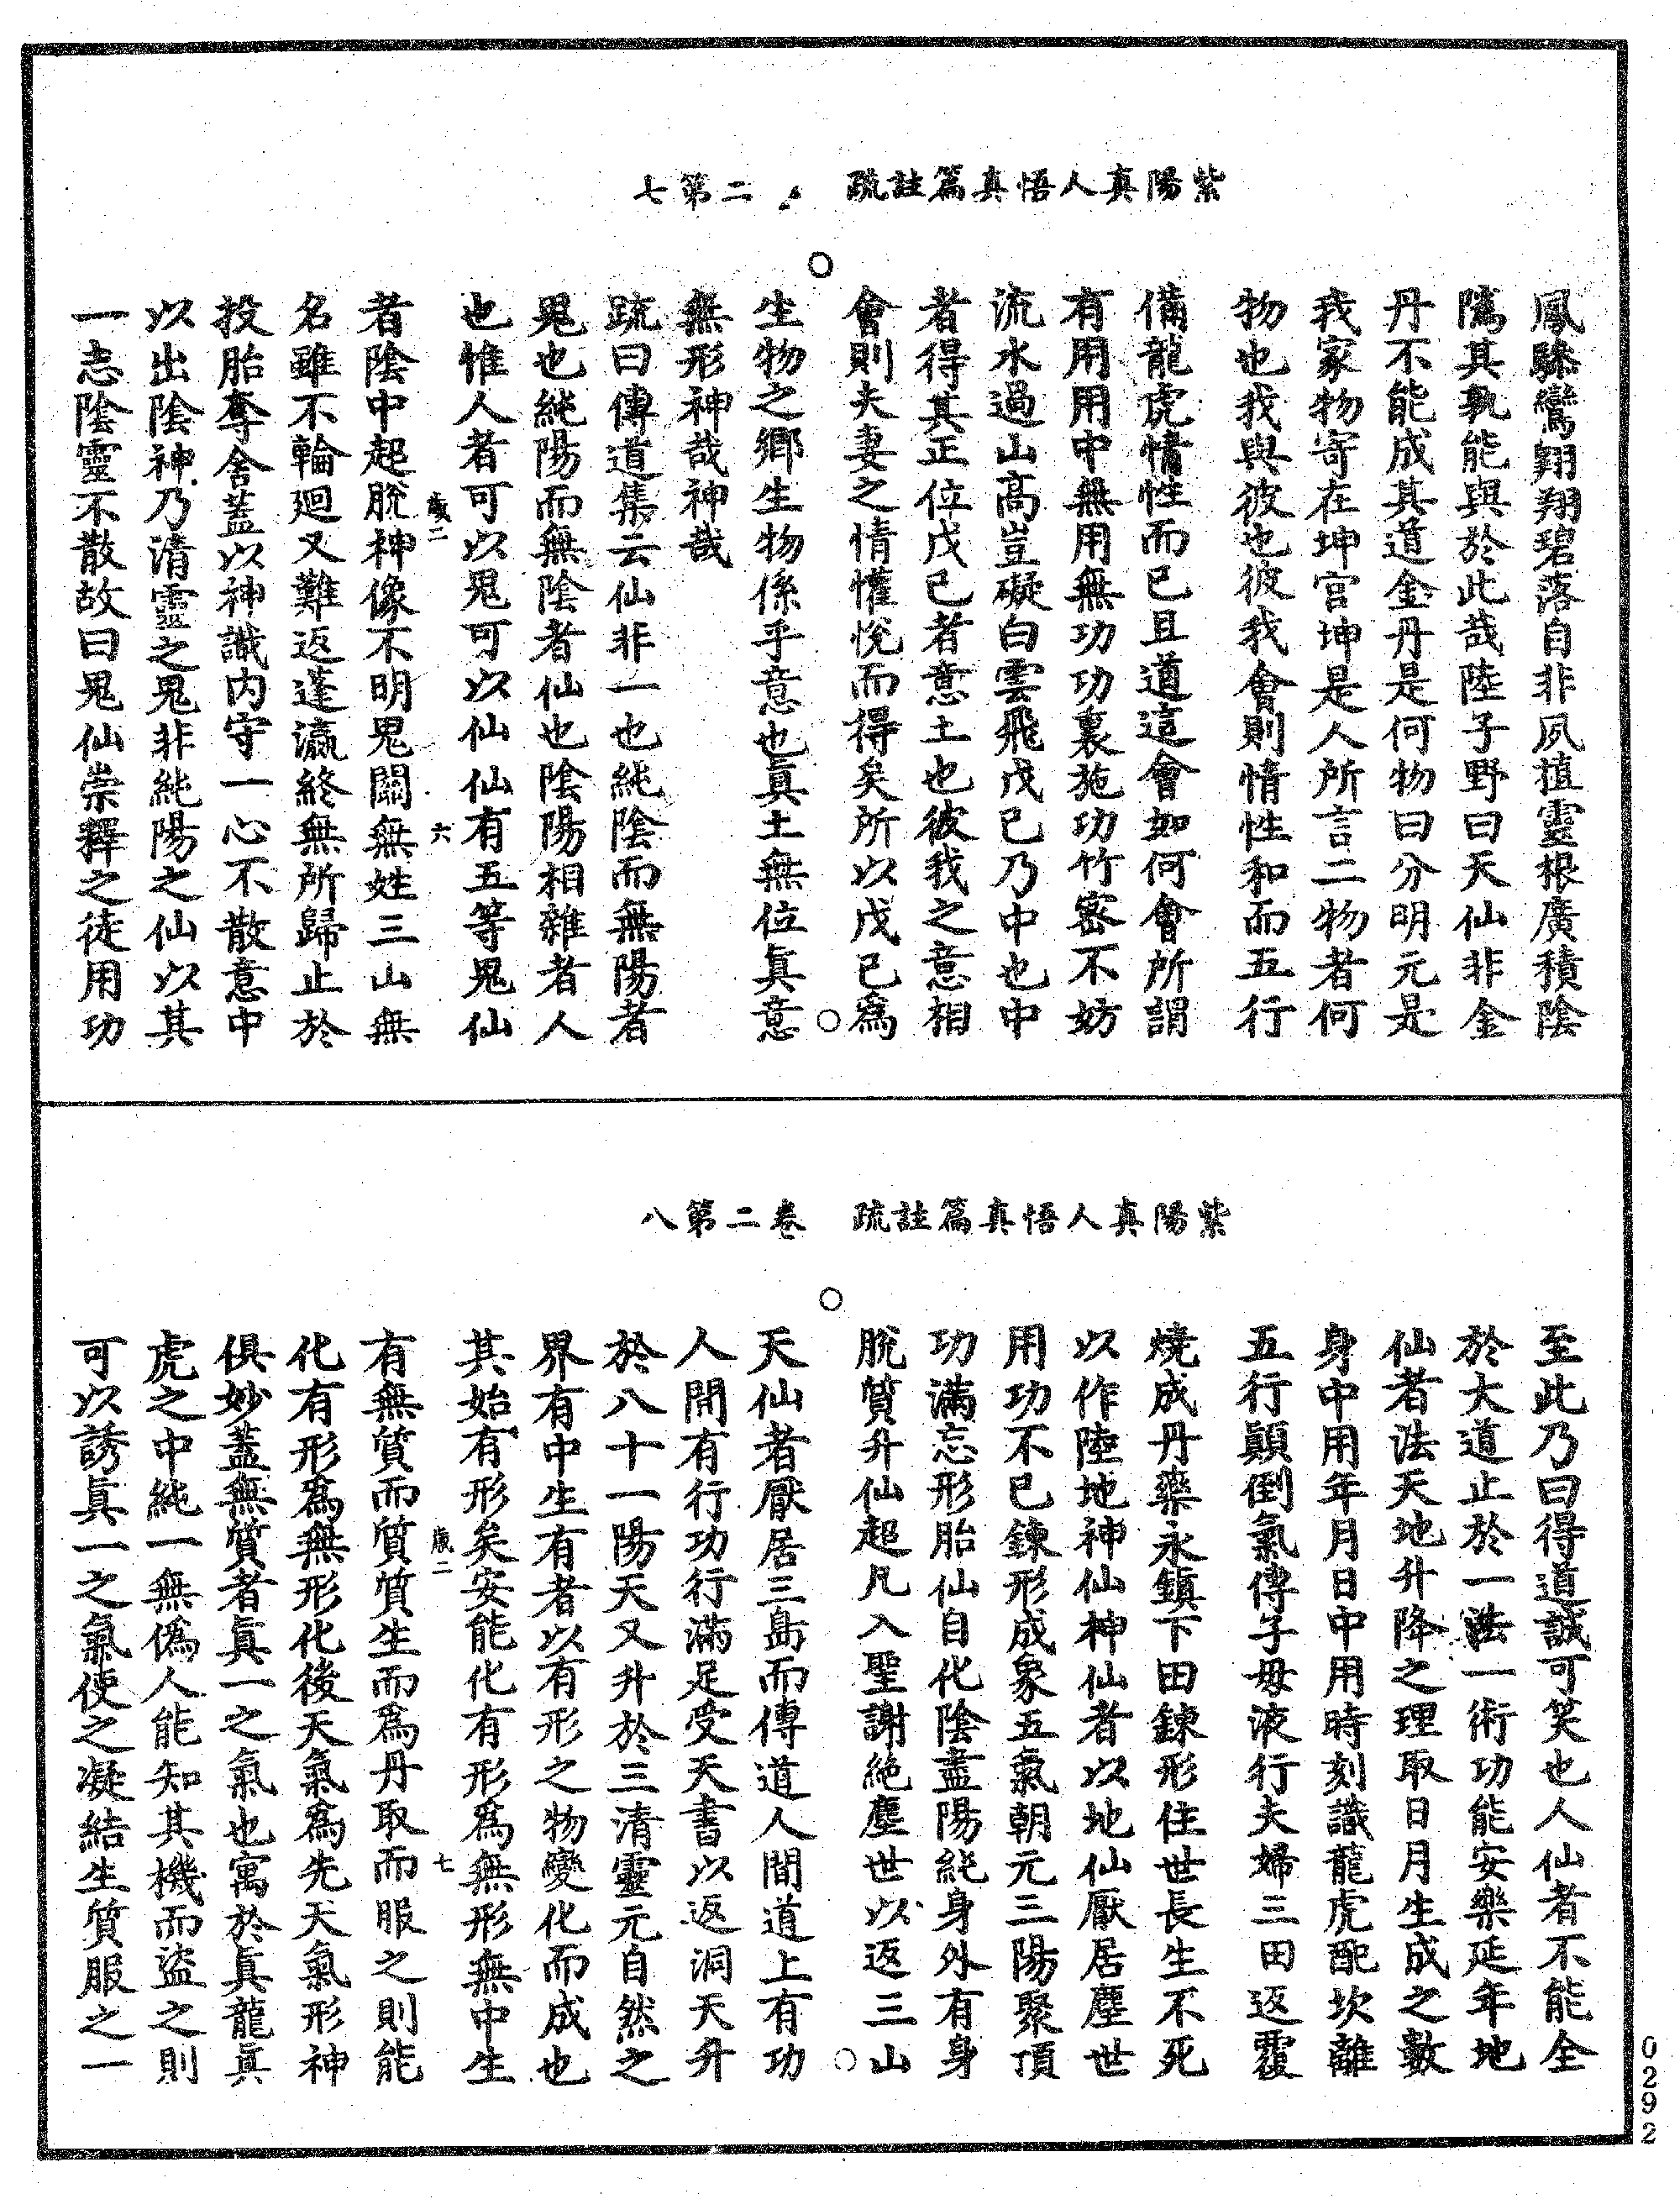 紫陽真人悟真篇註疏　二第七
鳳驂鸞翔翔碧落自非夙植靈根廣積陰
隲其孰能與於此哉陸子野曰天仙非金
丹不能成其道金丹是何物曰分明元是
我家物寄在坤宫坤是人所言二物者何
物也我與彼也彼我會則情性和而五行
備龍虎情性而已且道這會如何會所謂
有用用中無用無功功裏施功竹密不妨
流水過山高豈礙白雲飛戊己乃中也中
者得其正位戊己者意土也彼我之意相
會則夫妻之情懽悅而得矣所以戊己爲
生物之鄉生物係乎意也眞土無位眞意
無形神哉神哉
疏曰傳道集云仙非一也純陰而無陽者
鬼也純陽而無陰者仙也陰陽相雜者人
也惟人者可以鬼可以仙仙有五等鬼仙
歲二　六
者陰中起脫神像不明鬼關無姓三山無
名雖不輪廻又難返蓬瀛終無所歸止於
投胎奪舍蓋以神識内守一心不散意中
以出陰神乃清靈之鬼非純陽之仙以其
一志陰靈不散故曰鬼仙崇釋之徒用功
紫陽真人悟真篇註疏　卷二第八
至此乃曰得道誠可笑也人仙者不能全
於大道止於一法一術功能安樂延年地
仙者法天地升降之理取日月生成之數
身中用年月日中用時刻識龍虎配坎離
五行顛倒氣傳子母液行夫婦三田返覆
燒成丹藥永鎮下田鍊形住世長生不死
以作陸地神仙神仙者以地仙厭居塵世
用功不已鍊形成象五氣朝元三陽聚頂
功滿忘形胎仙自化陰盡陽純身外有身
脫質升仙起凡入聖謝絶塵世以返三山
天仙者厭居三島而傳道人間道上有功
人間有行功行滿足受天書以返洞天升
於八十一陽天又升於三清靈元自然之
界有中生有者以有形之物變化而成也
其始有形矣安能化有形爲無形無中生
歲二　七
有無質而質質生而爲丹取而服之則能
化有形爲無形化後天氣爲先天氣形神
俱妙蓋無質者眞一之氣也寓於眞龍眞
虎之中純一無僞人能知其機而盜之則
可以誘眞一之氣使之凝結生質服之一
0292